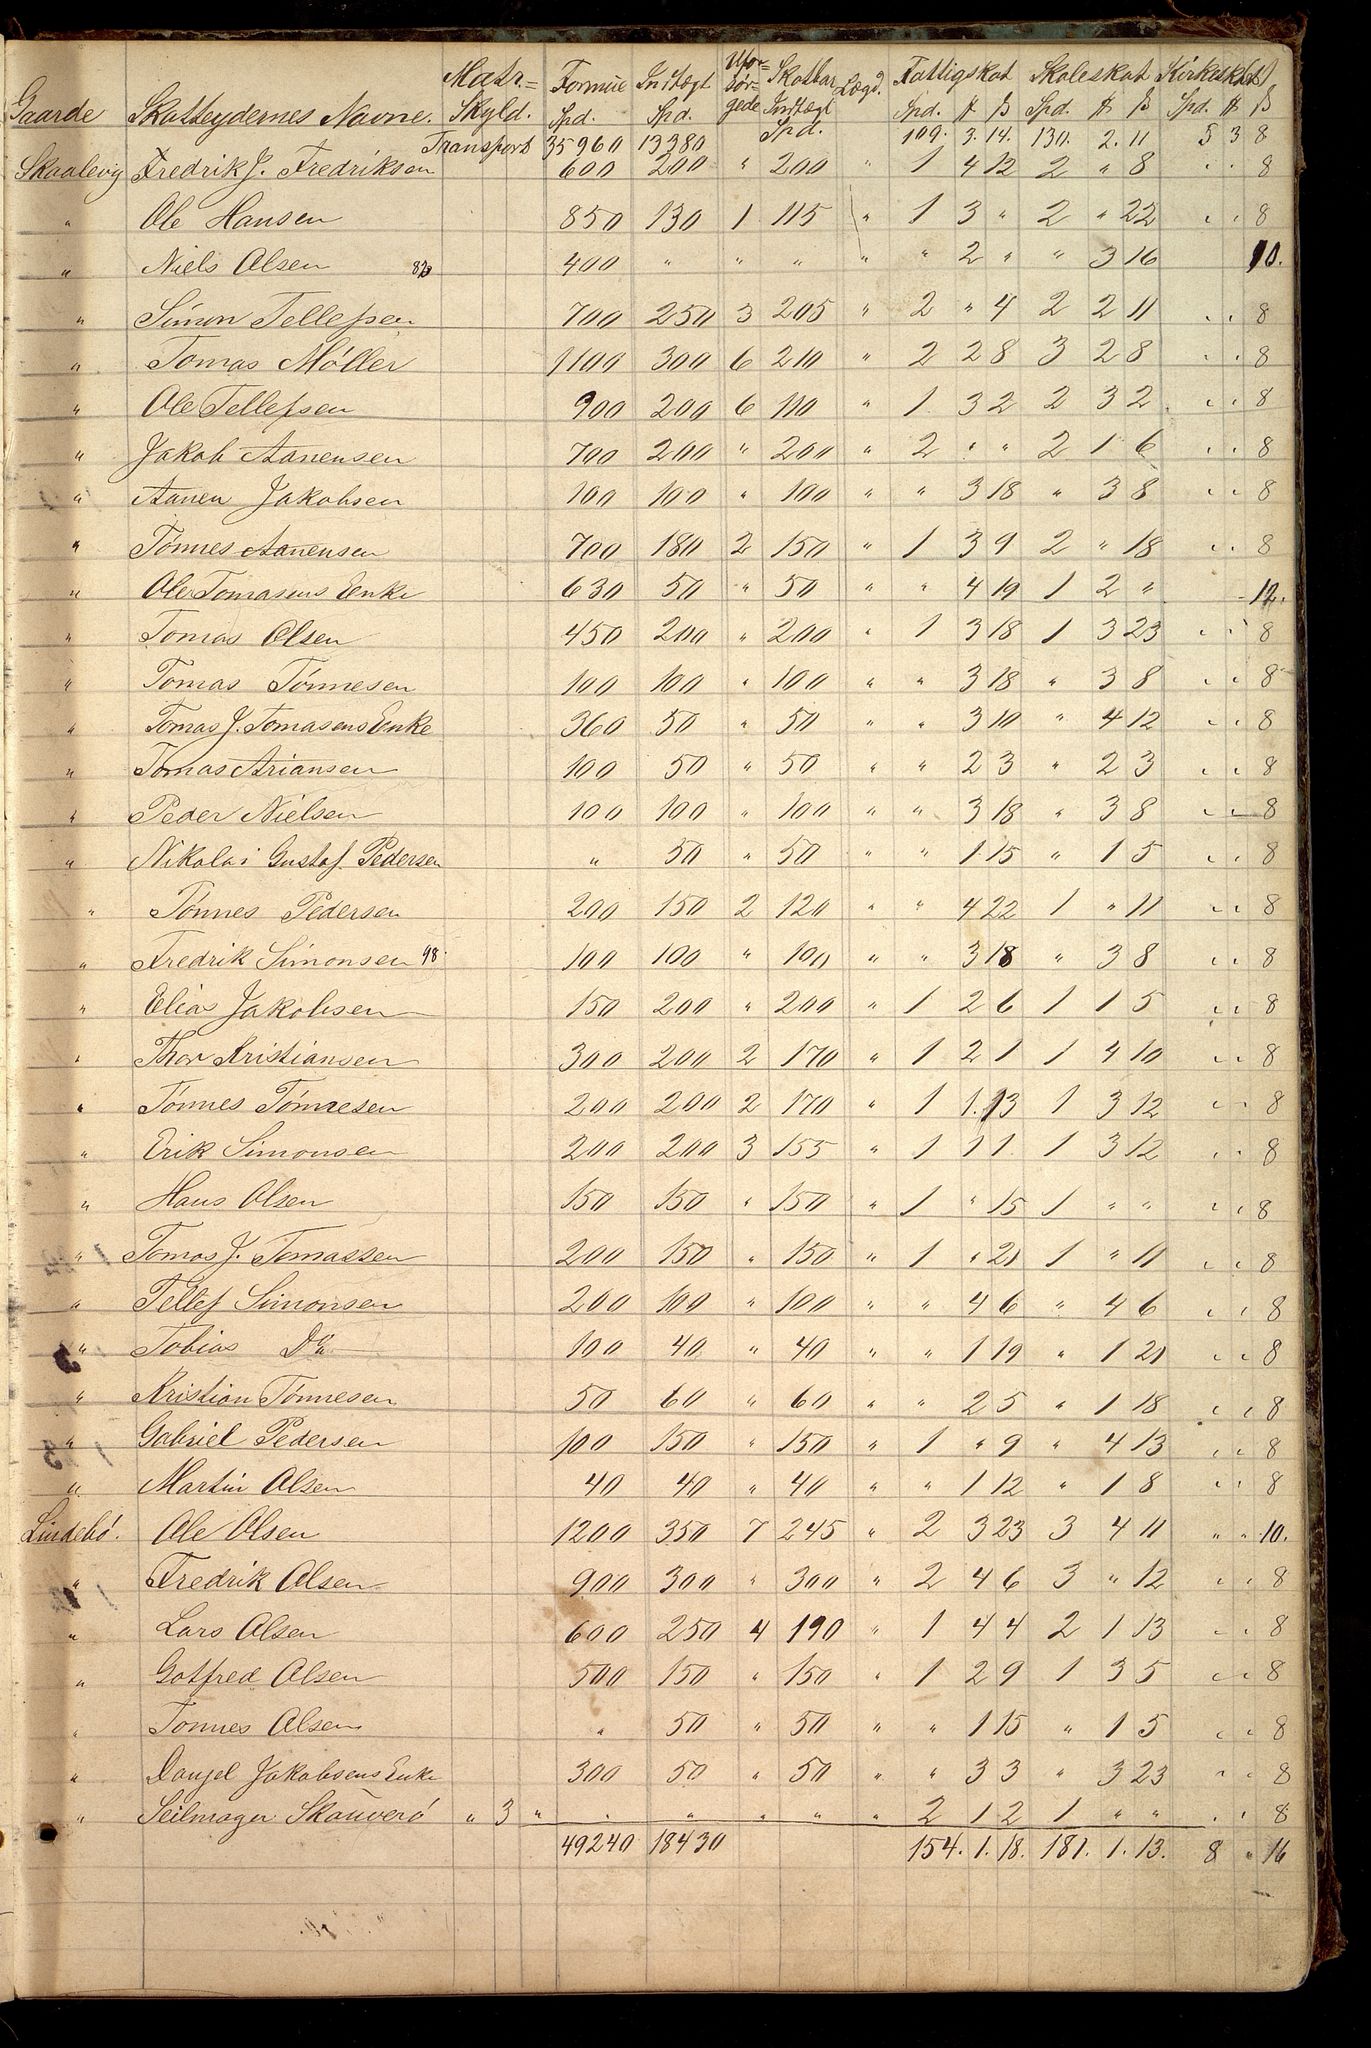 Gaarde Skatteydernes Navne. Matr= Skyld. Formue Spd. Indtægt Spd. Ufor= sør= gede Skatbar Indtægt Spd. Lægd. Fattigskat Spd. # ß Skoleskat Spd. # ß Kirkeskat Spd. # ß
Transport 35960 13380 109. 3. 14. 130. 2. 11 5 3 8
Skaalevig Fredrik J. Fredriksen 600 200 " 200 " 1 4 12 2 " 8 " " 8
" Ole Hansen 850 130 1 115 " 1 3 " 2 " 22 " " 8
" Niels Olsen 400 " " " " " 2 " " 3 16 10.
" Simon Tellefsen 700 250 3 205 " 2 " 4 2 2 11 " " 8
" Tomas Møller 1100 300 6 210 " 2 2 8 3 2 8 " " 8
" Ole Tellefsen 900 200 6 110 " 1 3 2 2 3 2 " " 8
" Jakob Aanensen 700 200 " 200 " 2 " " 2 1 6 " " 8
" Aanen Jakobsen 100 100 " 100 " " 3 18 " 3 8 " " 8
" Tønnes Aanensen 700 180 2 150 " 1 3 9 2 " 18 " " 8
" Ole Tomasens Enke 630 50 " 50 " " 4 19 1 2 " 12.
" Tomas Olsen 450 200 " 200 " 1 3 18 1 3 23 " " 8
" Tomas Tønnesen 100 100 " 100 " " 3 18 " 3 8 " " 8
" Tomas J. Tomasens Enke 360 50 " 50 " " 3 10 " 4 12 " " 8
" Tomas Ariansen 100 50 " 50 " " 2 3 " 2 3 " " 8
" Peder Nielsen 100 100 " 100 " " 3 18 " 3 8 " " 8
" Nikolai Gustaf Pedersen " 50 " 50 " " 1 15 " 1 5 " " 8
" Tønnes Pedersen 200 150 2 120 " " 4 22 1 " 11 " " 8
" Fredrik Simonsen 98 100 100 " 100 " " 3 18 " 3 8 " " 8
" Elias Jakobsen 150 200 " 200 " 1 2 6 1 1 5 " " 8
" Thor Kristiansen 300 200 2 170 " 1 2 1 1 4 10 " " 8
" Tønnes Tønnesen 200 200 2 170 " 1 1. 13 1 3 12 " " 8
" Erik Simonsen 200 200 3 155 " 1 1 1 1 3 12 " " 8
" Hans Olsen 150 150 " 150 " 1 " 15 1 " " " " 8
" Tomas J. Tomassen 200 150 " 150 " 1 " 21 1 " 11 " " 8
" Tellef Simonsen 200 100 " 100 " " 4 6 " 4 6 " " 8
" Tobias Do 100 40 " 40 " " 1 19 " 1 21 " " 8
" Kristian Tønnesen 50 60 " 60 " " 2 5 " 1 18 " " 8
" Gabriel Pedersen 100 150 " 150 " 1 " 9 " 4 13 " " 8
" Martin Olsen 40 40 " 40 " " 1 12 " 1 8 " " 8
Lindebø. Ole Olsen 1200 350 7 245 " 2 3 23 3 4 11 " " 10.
" Fredrik Olsen 900 300 " 300 " 2 4 6 3 " 12 " " 8
" Lars Olsen 600 250 4 190 " 1 4 4 2 1 13 " " 8
" Gotfred Olsen 500 150 " 150 " 1 2 9 1 3 5 " " 8
" Tønnes Olsen " 50 " 50 " " 1 15 " 1 5 " " 8
" Danjel Jakobsens Enke 300 50 " 50 " " 3 3 " 3 23 " " 8
" Seilmager Skauerø " 3 " " " " " " 2 1 2 1 " " " " 8
49240 18430 154. 1. 18. 181. 1. 13. 8 " 16